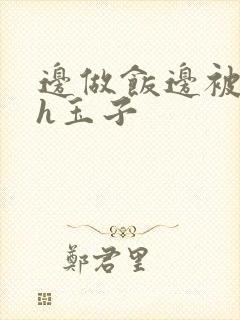 邊做飯邊被
h玉子
鄭君里